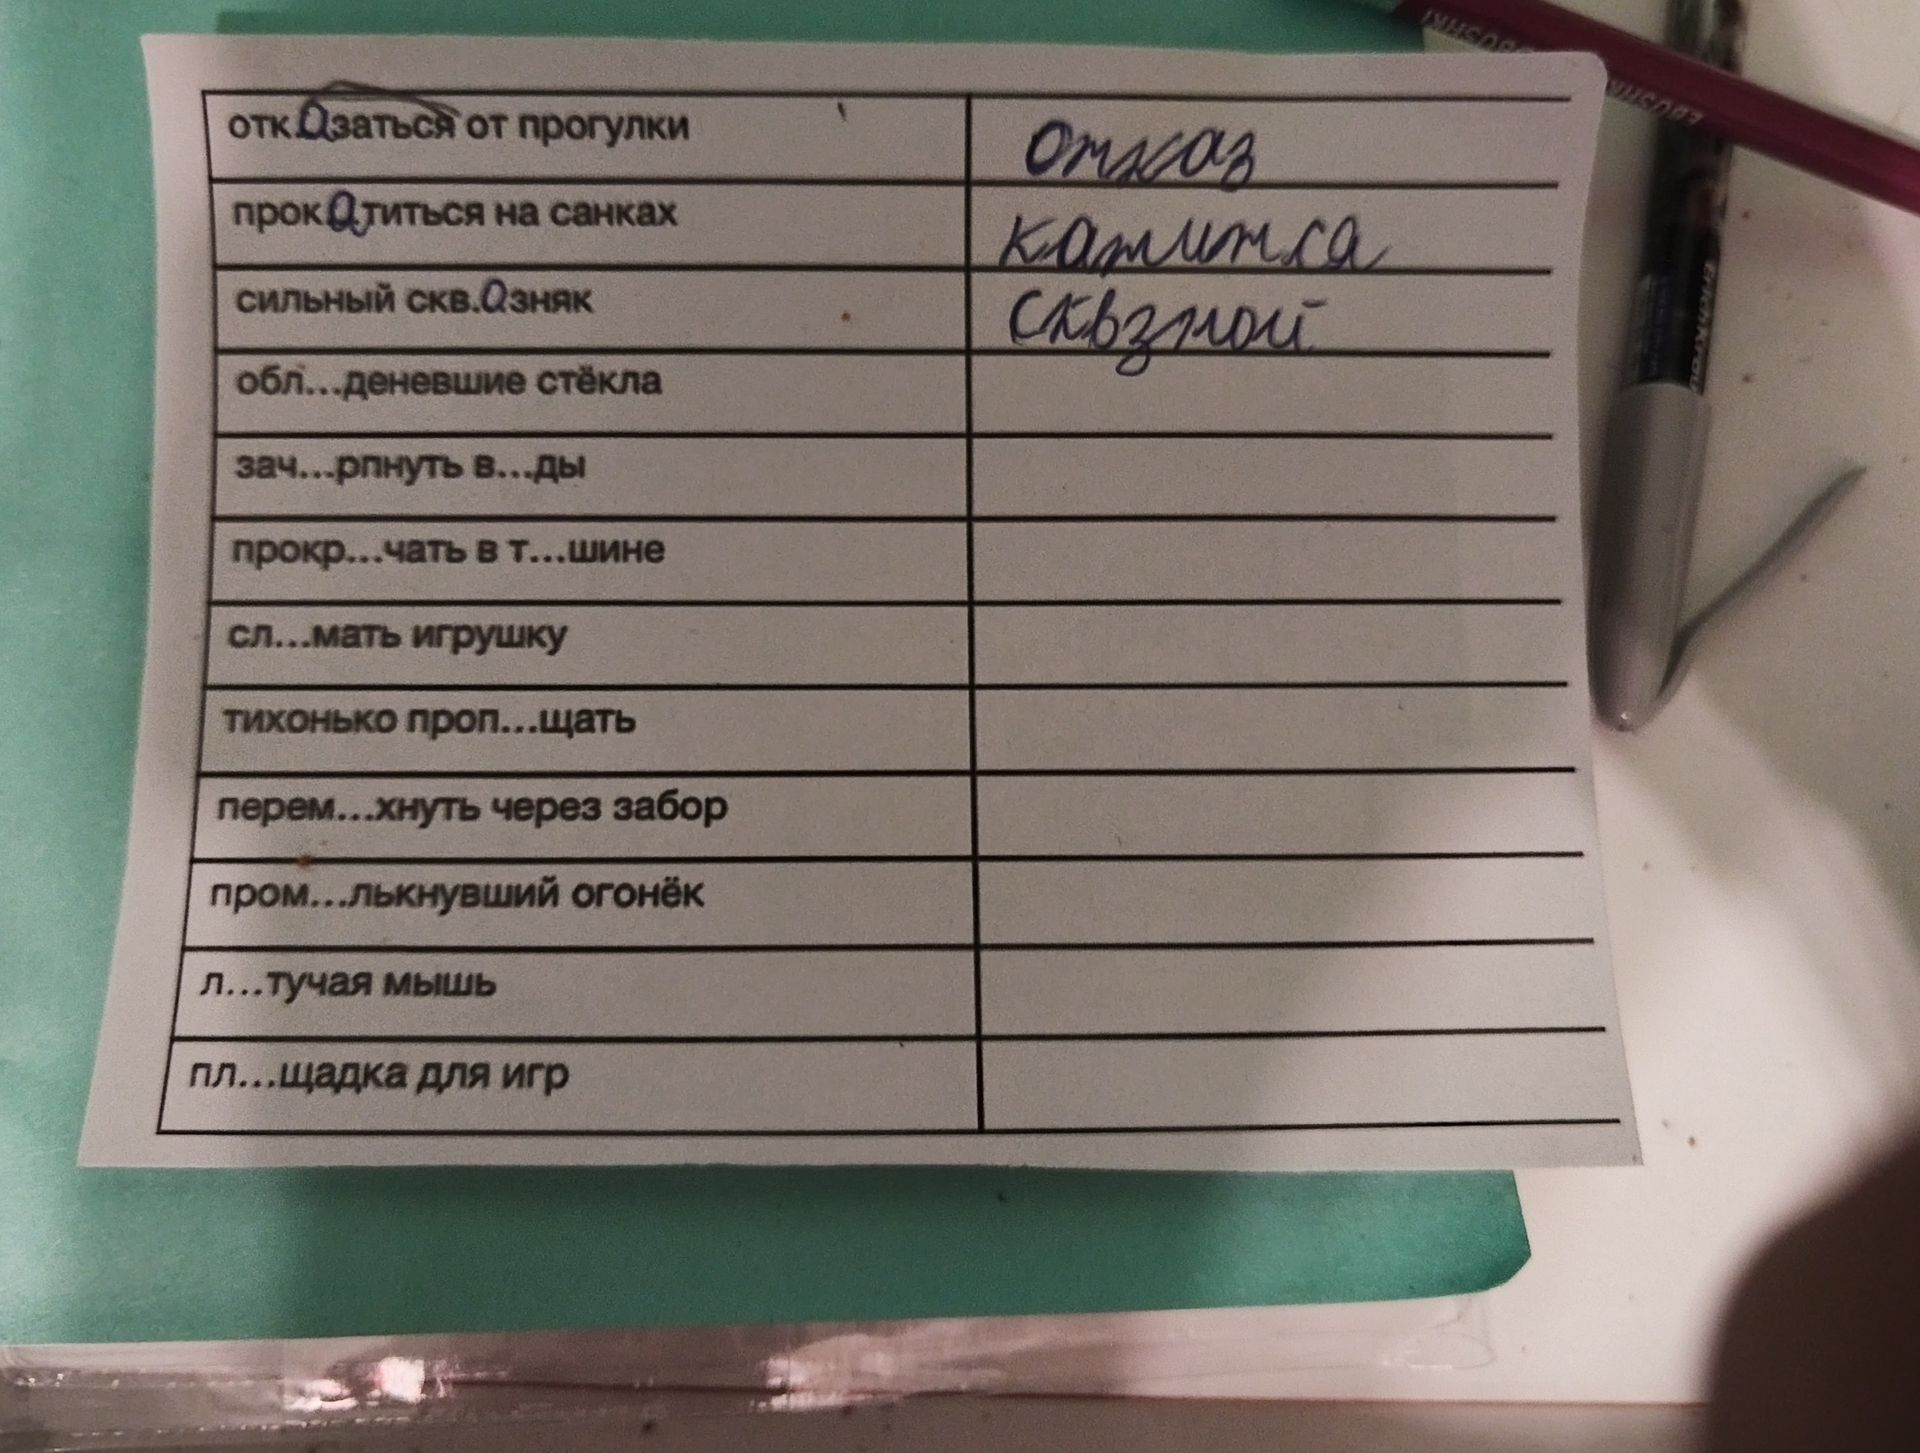 отк.азаться от прогулки отказ
прокатиться на санках катится
сильный скв.азняк сквзной
обл...деневшие стёкла
зач...рпнуть в...ды
прокр...чать в т...шине
сл...мать игрушку
тихонько проп...щать
перем...хнуть через забор
пром...лькнувший огонёк
л...тучая мышь
пл...щадка для игр